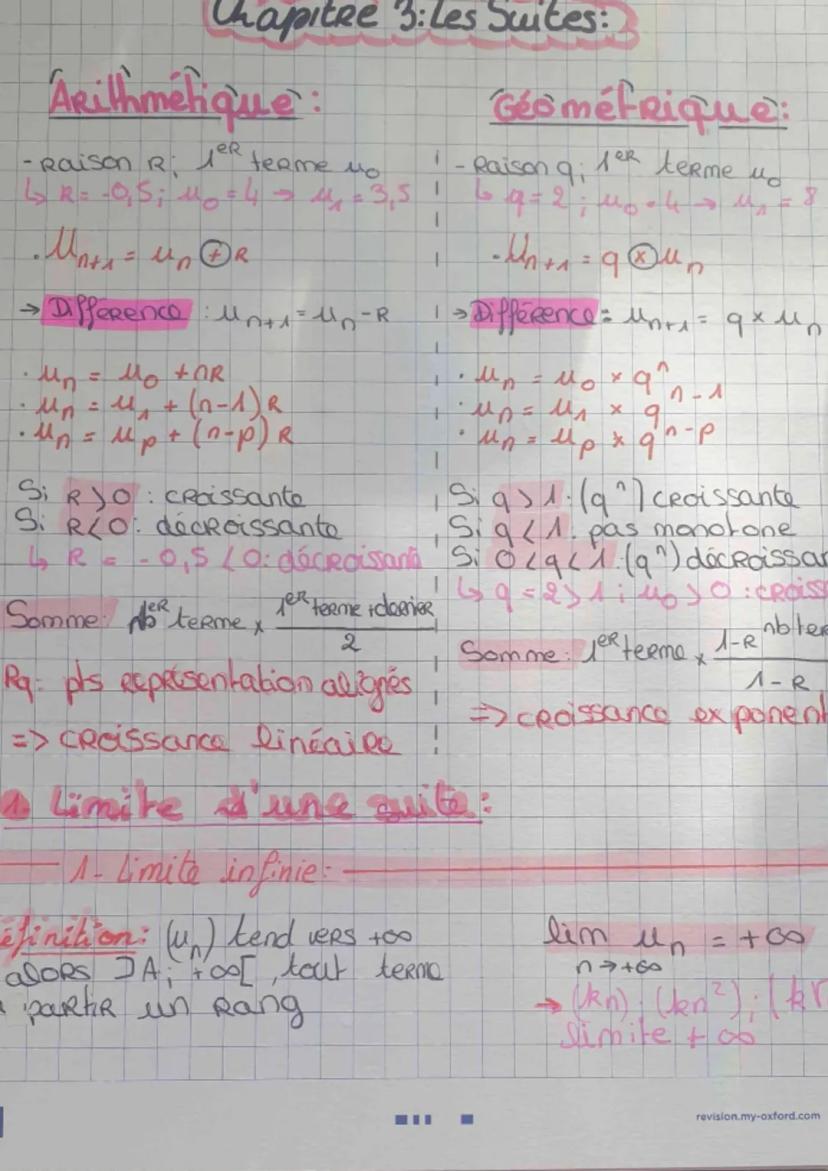 Chapitre 3: Les Suites:
Arithmétique:
- Raison R; 1er terme u₀
↳ R = -0,5; u₀ = 4 → u₁ = 3,5
. uₙ₊₁ = uₙ ⊕ R
→ Différence : uₙ₊₁ = uₙ - R
. uₙ = u₀ + nR
. uₙ = u₁ + (n-1) R
. uₙ = uₚ + (n-p) R
Si R > 0 : croissante
Si R < 0 : décroissante
↳ R = -0,5 < 0 : décroissant
Somme: nb er terme × (1er terme + dernier)/2
Rq: pts représentation alignés
=> croissance linéaire
Géométrique:
- Raison q; 1er terme u₀
↳ q = 2 ; u₀ = 4 → u₁ = 8
. uₙ₊₁ = q ⊗ uₙ
→ Différence = uₙ₊₁ = q × uₙ
. uₙ = u₀ × qⁿ
. uₙ = u₁ × qⁿ⁻¹
. uₙ = uₚ × qⁿ⁻ᵖ
Si q > 1 : (qⁿ) croissante
Si q < 1 : pas monotone
Si 0 < q < 1 : (qⁿ) décroissan
↳ q = 2 > 1 ; u₀ > 0 : croiss
Somme: 1er terme × (1-R^nb ter)/(1-R)
=> croissance exponent
Limite d'une suite:
1- Limite infinie:
éfinition: (uₙ) tend vers +∞
alors ]A; +∞[, tout terme
partir un rang
lim uₙ = +∞
n→+∞
→ (kn); (kn²); (k
limite +∞
revision.my-oxford.com